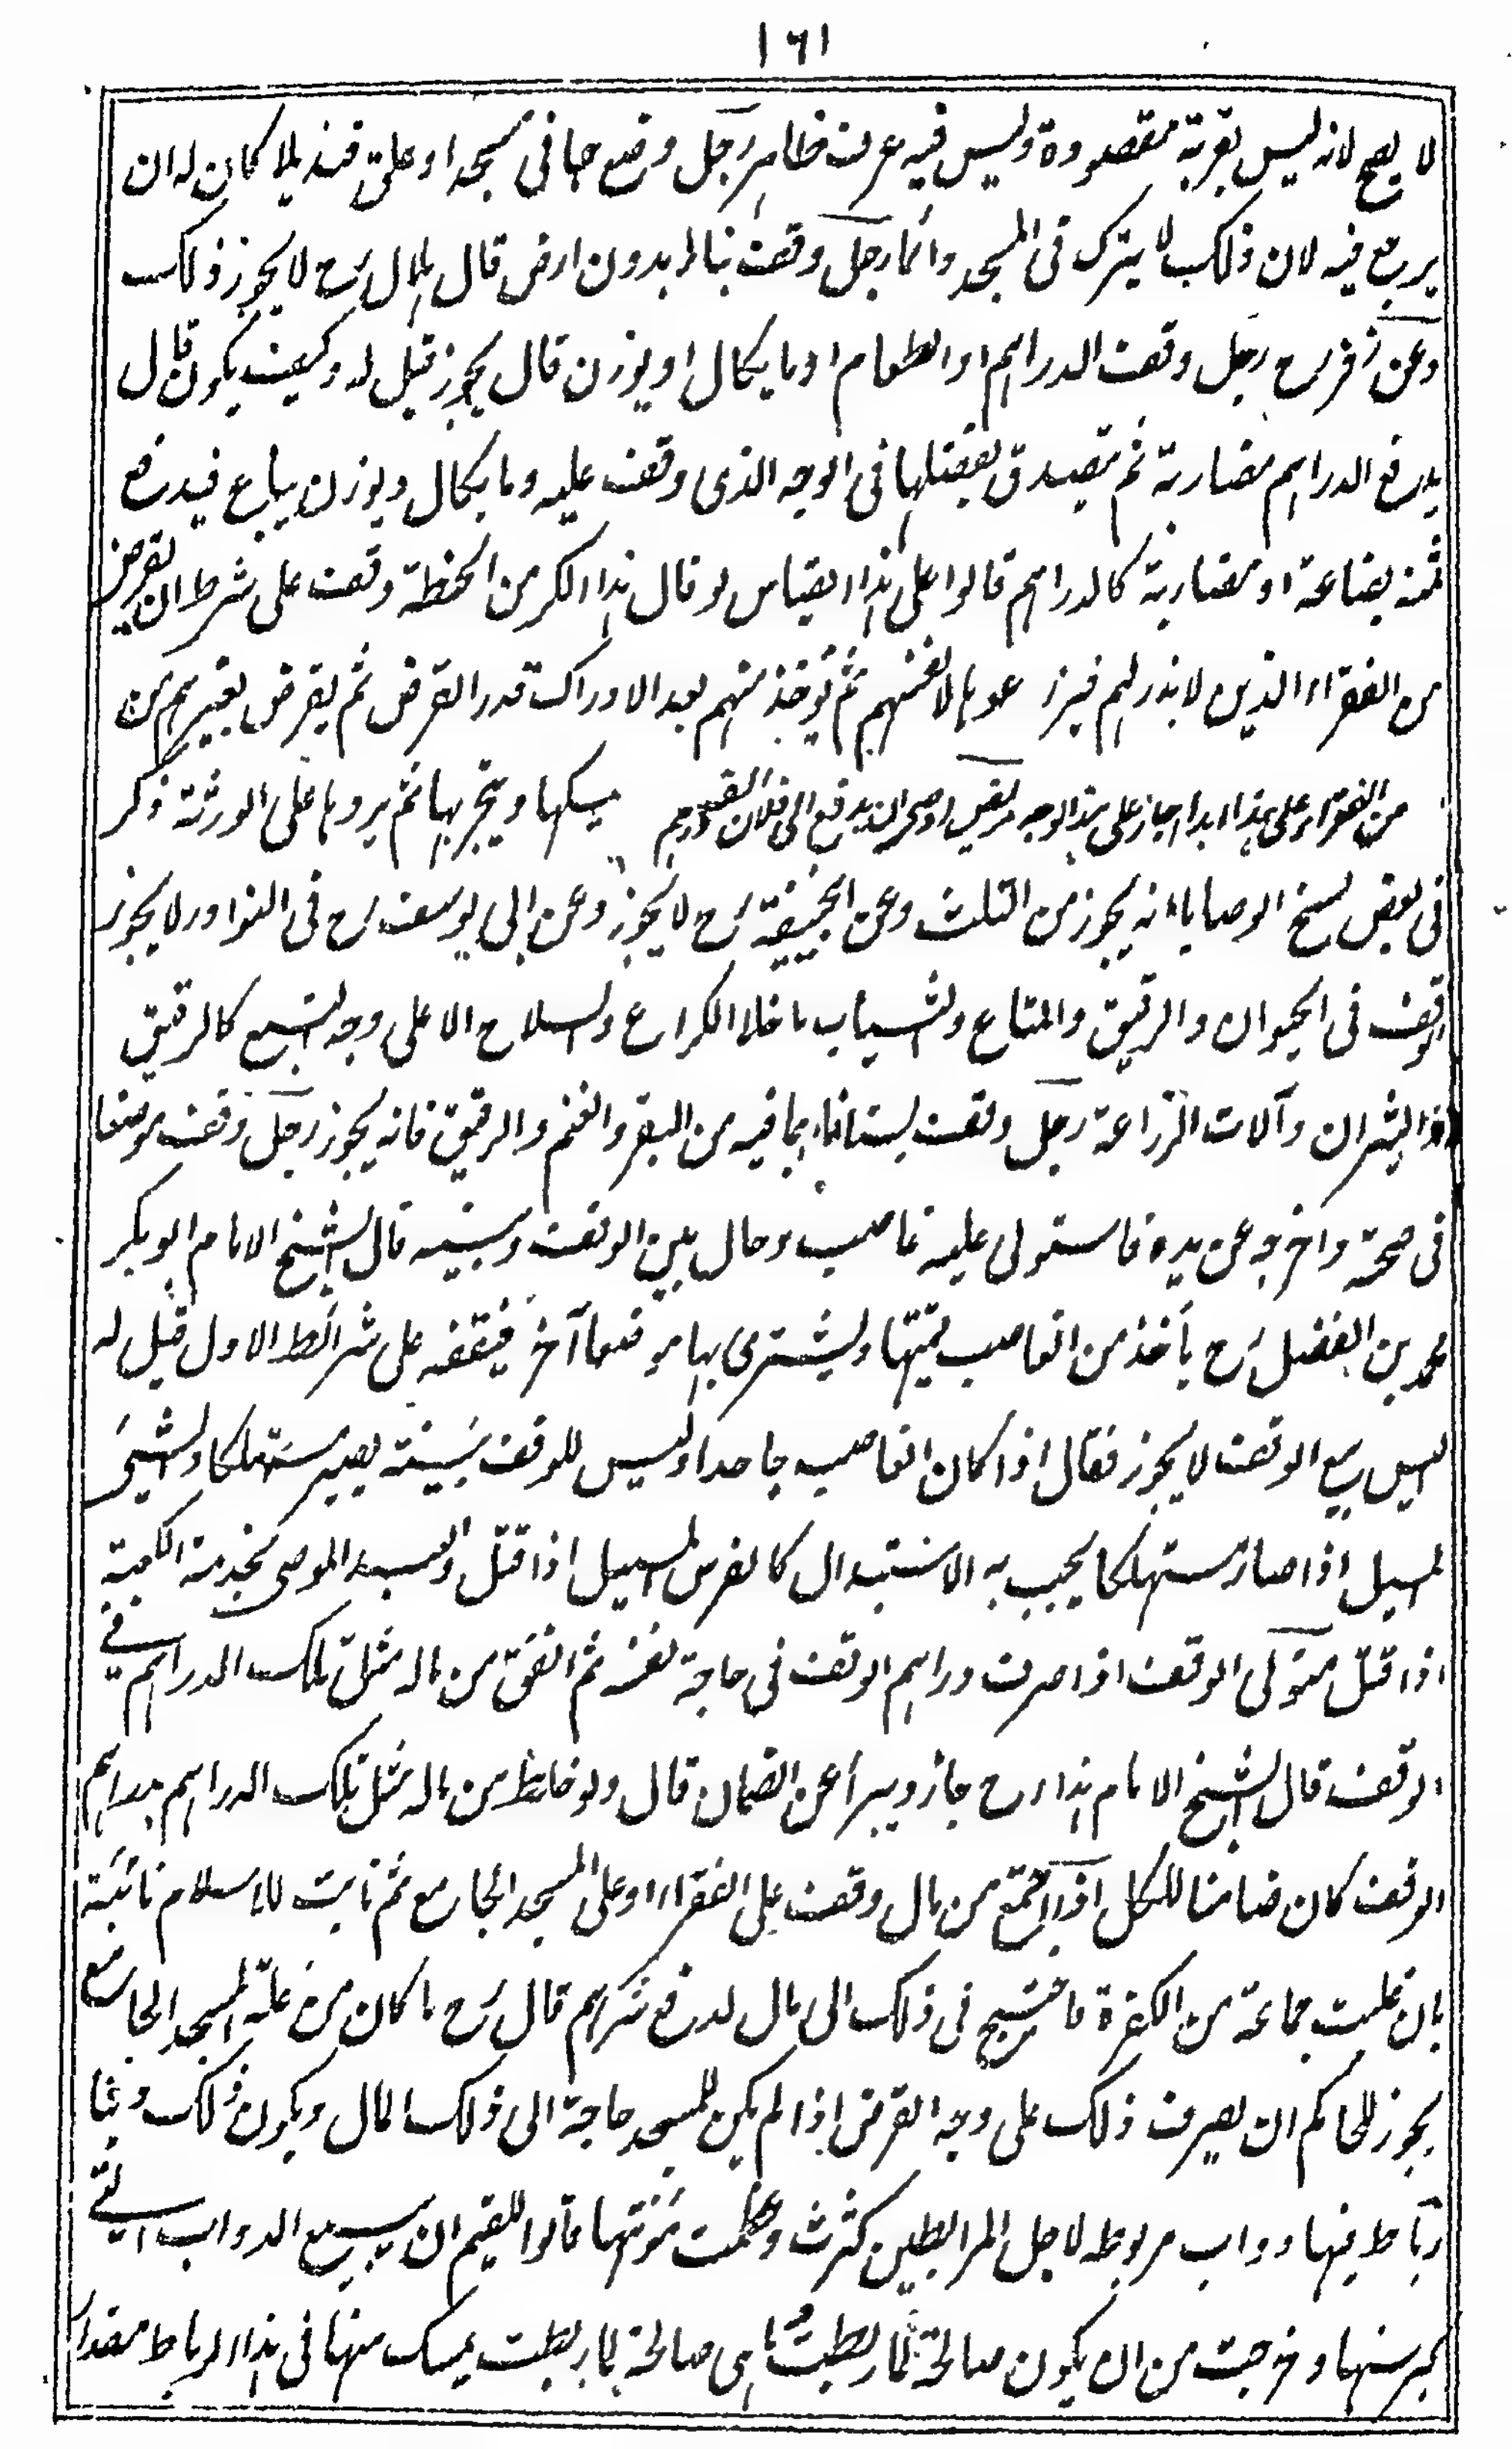 ١٦١
لا يصح لانه ليس بقربة مقصودة وليس فيه عرف ظاهر رجل وضع حبا فى مسجد او علق قنديلا كان له ان
يرجع فيه لان ذلك لا يترك فى المسجد دائما رجل وقف بناء بدون ارض قال هلال رح لا يجوز ذلك
وعن زفر رح رجل وقف الدراهم او الطعام او ما يكال او يوزن قال يجوز قيل له وكيف يكون قال
يدفع الدراهم مضاربة ثم يتصدق بفضلها فى الوجه الذى وقف عليه وما يكال ويوزن يباع فيدفع
ثمنه بضاعة او مضاربة كالدراهم قالوا على هذا القياس لو قال هذا الكر من الحنطة وقف على شرط ان يقرض
من الفقراء الذين لا بذر لهم فيزرعونها لانفسهم ثم تؤخذ منهم بعد الادراك قدر القرض ثم يقرض بغيرهم من
من الفقراء على هذا ابدا جاز على هذا الوجه مريض اوصى ان يدفع الى فلان الف درهم يمسكها ويتجر بها ثم يردها على الورثة ذكر
فى بعض نسخ الوصايا انه يجوز من الثلث وعن ابيحنيفة رح لا يجوز وعن ابى يوسف رح فى النوادر لا يجوز
الوقف فى الحيوان والرقيق والمتاع والثياب ما خلا الكراع والسلاح الا على وجه التبع كالرقيق
والثيران وآلات الزراعة رجل وقف بستانا بما فيه من البقر والغنم والرقيق فانه يجوز رجل وقف موضعا
فى صحته واخرجه عن يده فاستولى عليه غاصب وحال بين الوقف وبينه قال الشيخ الامام ابو بكر
محمد بن الفضل رح يأخذ من الغاصب قيمتها ويشترى بها موضعا آخر فيقفه على شرائط الاول قيل له
اليس بيع الوقف لا يجوز فقال اذا كان الغاصب جاحدا وليس للوقف بينة يصير مستهلكا والشئ
المسبل اذا صار مستهلكا يجب به الاستبدال كالفرس المسبل اذا قتل والعبد الموصى بخدمة الكعبة
اذا قتل متولى الوقف اذا صرف دراهم الوقف فى حاجة نفسه ثم انفق من ماله مثل تلك الدراهم فى
الوقف قال الشيخ الامام هذا رح جاز ويبرأ عن الضمان قال ولو خلط من ماله مثل تلك الدراهم بدراهم
الوقف كان ضامنا للكل اذا اجتمع من مال وقف على الفقراء او على المسجد الجامع ثم نابت للاسلام نائبة
بان غلبت جماعة من الكفرة فاحتيج فى ذلك الى مال لدفع شرهم قال رح ما كان من غلة المسجد الجامع
يجوز للحاكم ان يصرف ذلك على وجه القرض اذا لم يكن للمسجد حاجة الى ذلك المال ويكون ذلك دينا
رباط فيها دواب مربوطة لاجل المرابطين كثرت وعظمت مؤنتها قالوا للقيم ان يبيع الدواب التى
كبر سنها وخرجت من ان يكون صالحة لما ربطت اى صالحة لما ربطت يمسك منها فى هذا الرباط مقدار